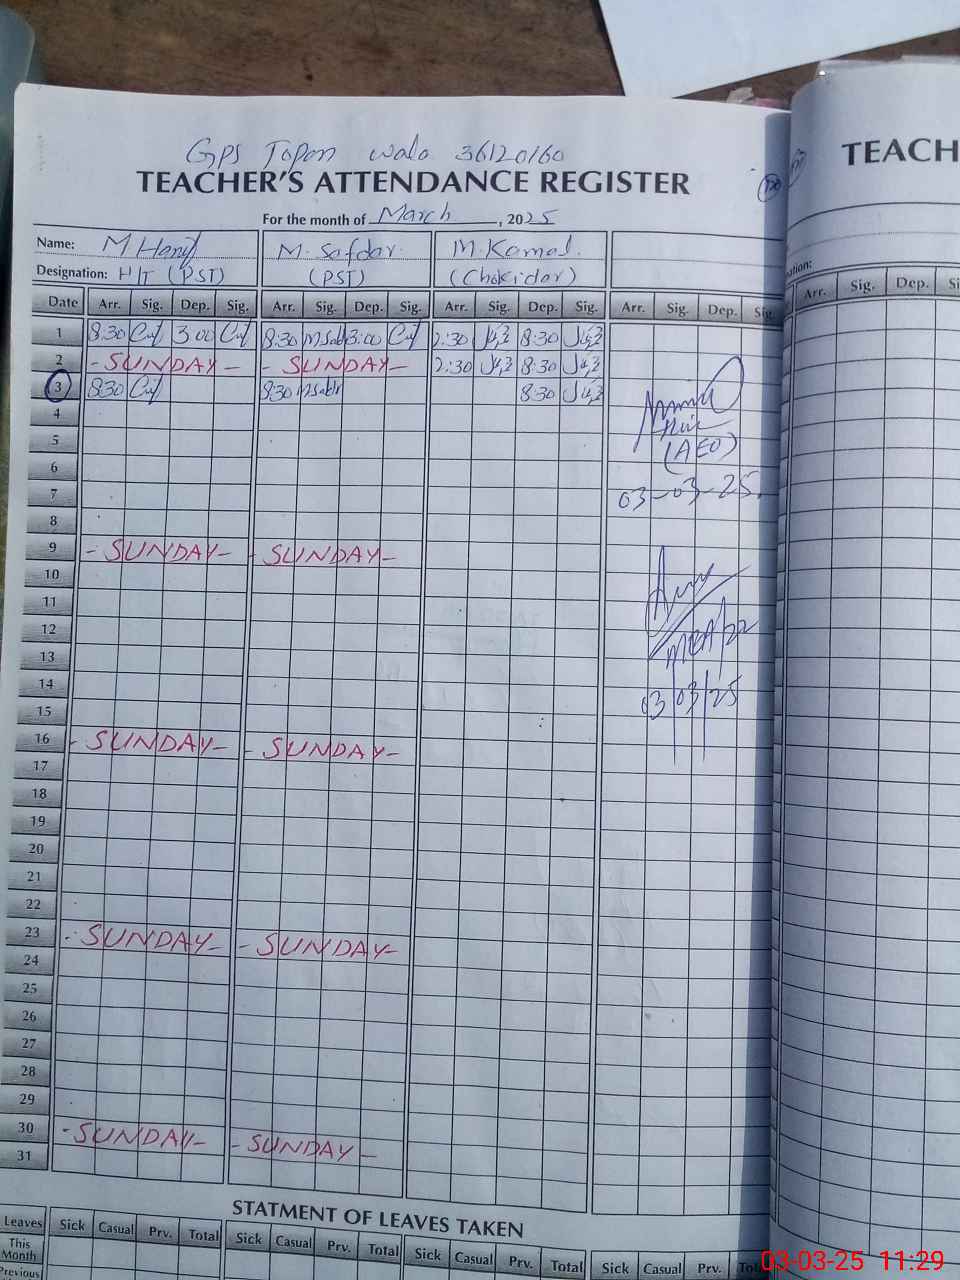 GPS Topan wala 36120160
TEACHER'S ATTENDANCE REGISTER
TEACH
For the month of March, 2025
Name: M Hanif M. Safdar. M. Kamal.
Designation: H/T (PST) (PST) (Chokidar)
Date Arr. Sig. Dep. Sig. Arr. Sig. Dep. Sig. Arr. Sig. Dep. Sig. Arr. Sig. Dep. Sig. Arr. Sig. Dep. Si
1 8:30 3:00 8:30 3:00 2:30 8:30
2 - SUNDAY - - SUNDAY - 2:30 8:30
3 8:30 8:30 8:30
4
5
(AEO)
6
7
03-03-25.
8
9 - SUNDAY - - SUNDAY -
10
11
12
13
14
03/03/25
15
16 - SUNDAY - - SUNDAY -
17
18
19
20
21
22
23 - SUNDAY - - SUNDAY -
24
25
26
27
28
29
30 - SUNDAY - - SUNDAY -
31
STATMENT OF LEAVES TAKEN
Leaves Sick Casual Prv. Total Sick Casual Prv. Total Sick Casual Prv. Total Sick Casual Prv.
This
Month
Previous
03-03-25 11:29